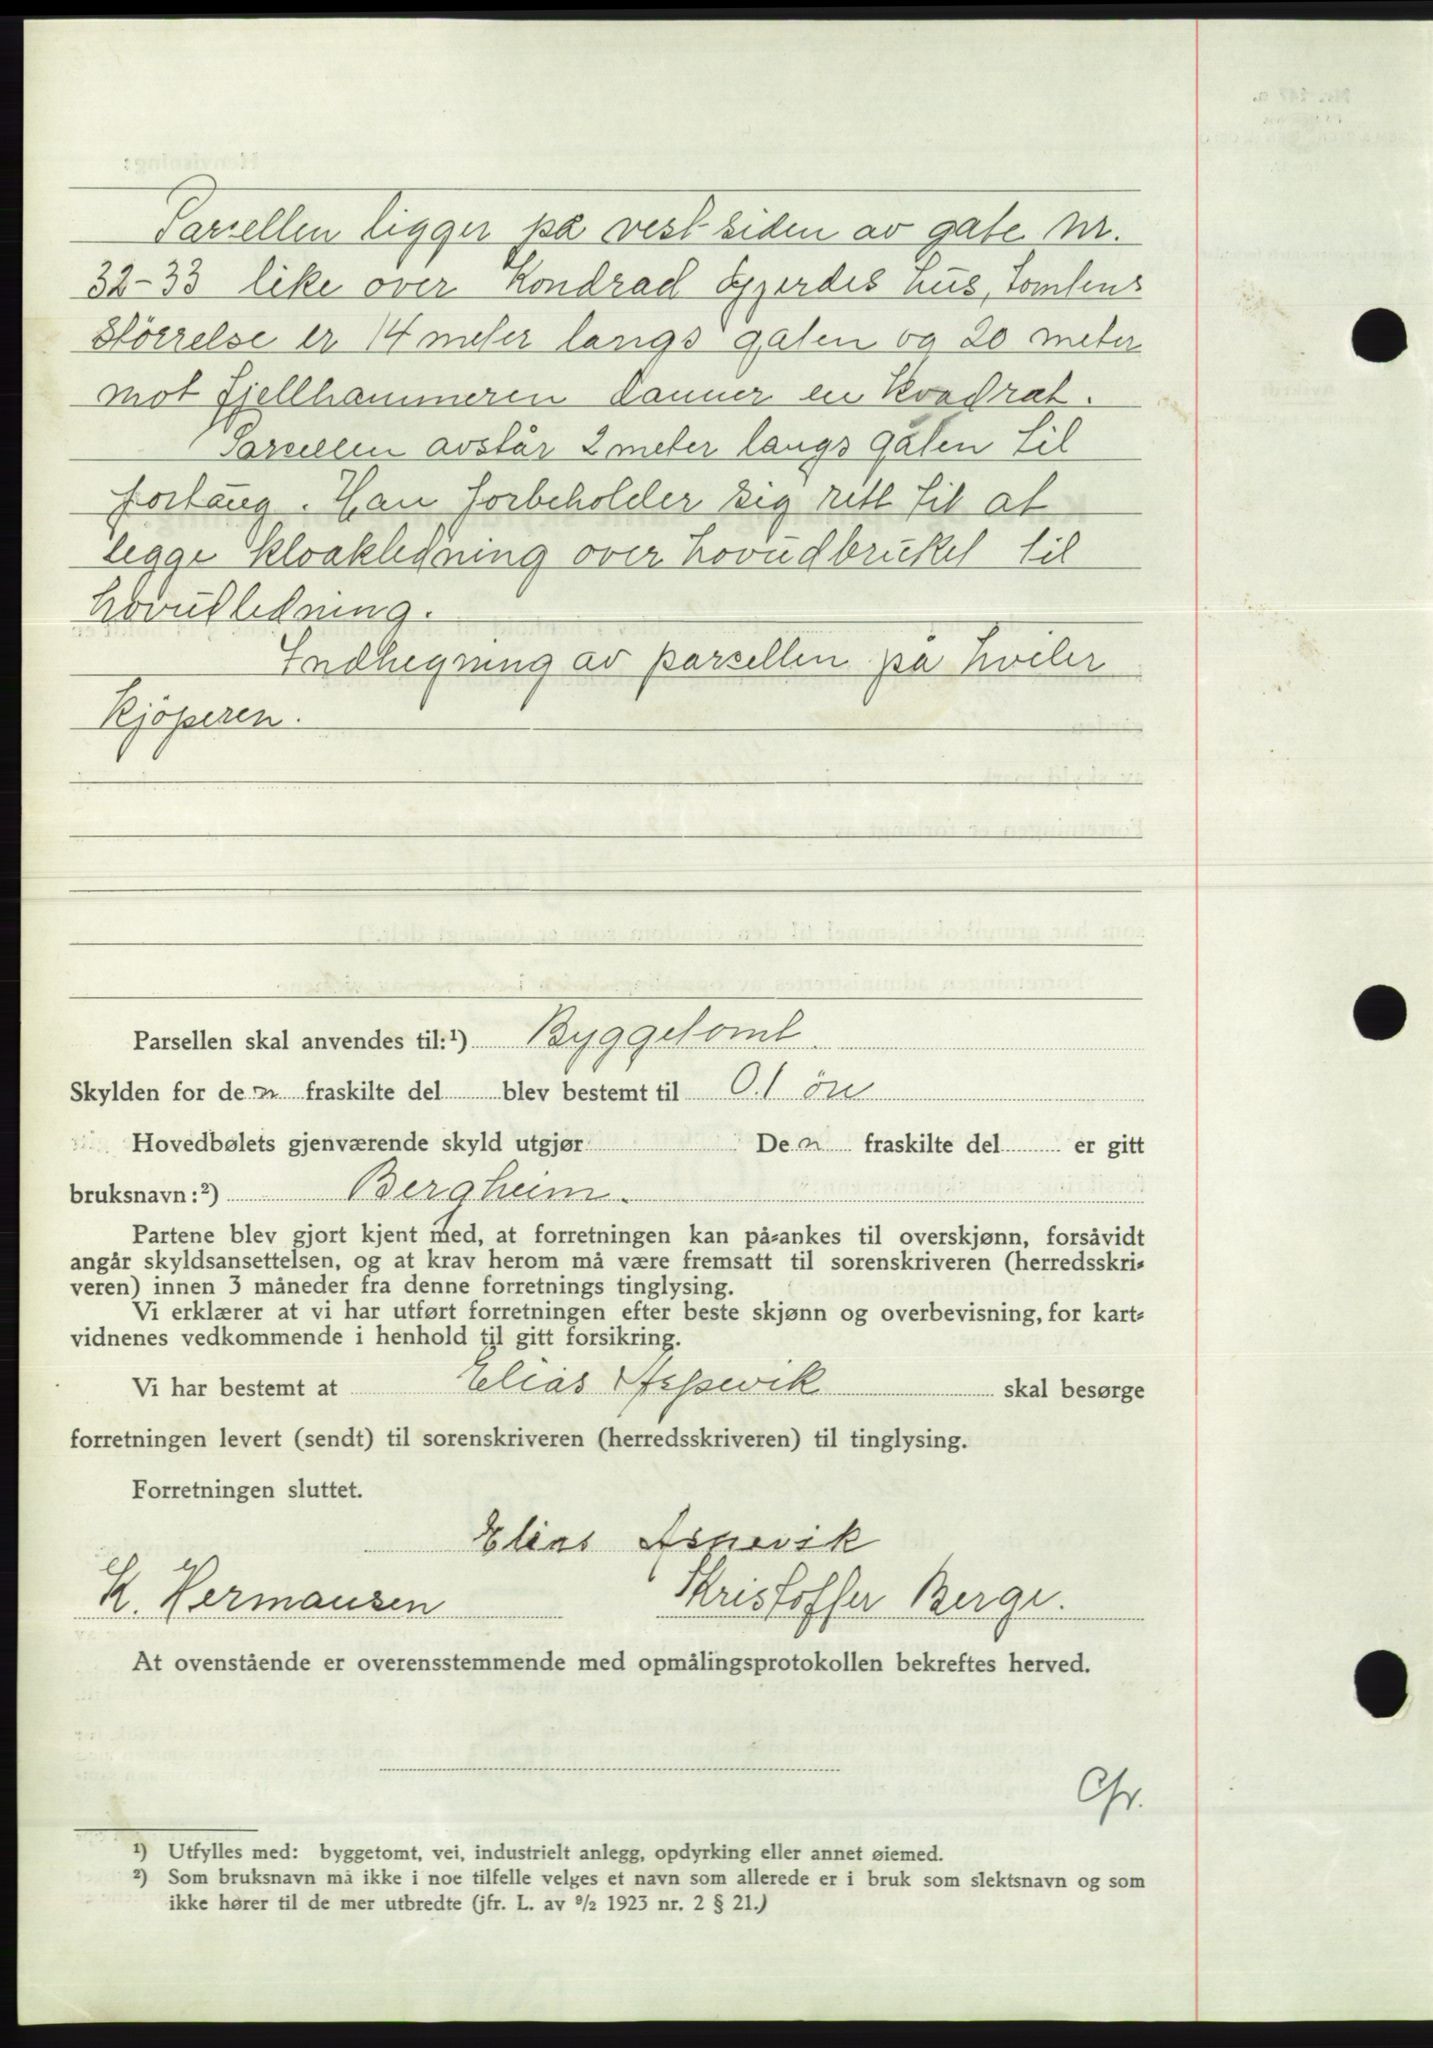 Parsellen ligger på vest-siden av gate nr.
32-33 like over Kondrad Gjerdes hus, tomtens
størrelse er 14 meter langs gaten og 20 meter
mot fjellhammeren danner en kvadrat.
Parsellen avstår 2 meter langs gaten til
fortaug. Han forbeholder sig rett til at
legge kloakledning over hovudbruket til
hovudledning.
Indhegning av parsellen på hviler
kjöperen.
Parsellen skal anvendes til:¹) Byggetomt.
Skylden for den fraskilte del blev bestemt til 0.1 öre
Hovedbølets gjenværende skyld utgjør Den fraskilte del er gitt
bruksnavn:²) Bergheim.
Partene blev gjort kjent med, at forretningen kan på-ankes til overskjønn, forsåvidt
angår skyldsansettelsen, og at krav herom må være fremsatt til sorenskriveren (herredsskri-
veren) innen 3 måneder fra denne forretnings tinglysing.
Vi erklærer at vi har utført forretningen efter beste skjønn og overbevisning, for kart-
vidnenes vedkommende i henhold til gitt forsikring.
Vi har bestemt at Elias Aspevik skal besørge
forretningen levert (sendt) til sorenskriveren (herredsskriveren) til tinglysing.
Forretningen sluttet.
Elias Aspevik
K. Hermansen Kristoffer Berge.
At ovenstående er overensstemmende med opmålingsprotokollen bekreftes herved.
¹) Utfylles med: byggetomt, vei, industrielt anlegg, opdyrking eller annet øiemed.
²) Som bruksnavn må ikke i noe tilfelle velges et navn som allerede er i bruk som slektsnavn og som
ikke hører til de mer utbredte (jfr. L. av 9/2 1923 nr. 2 § 21.)